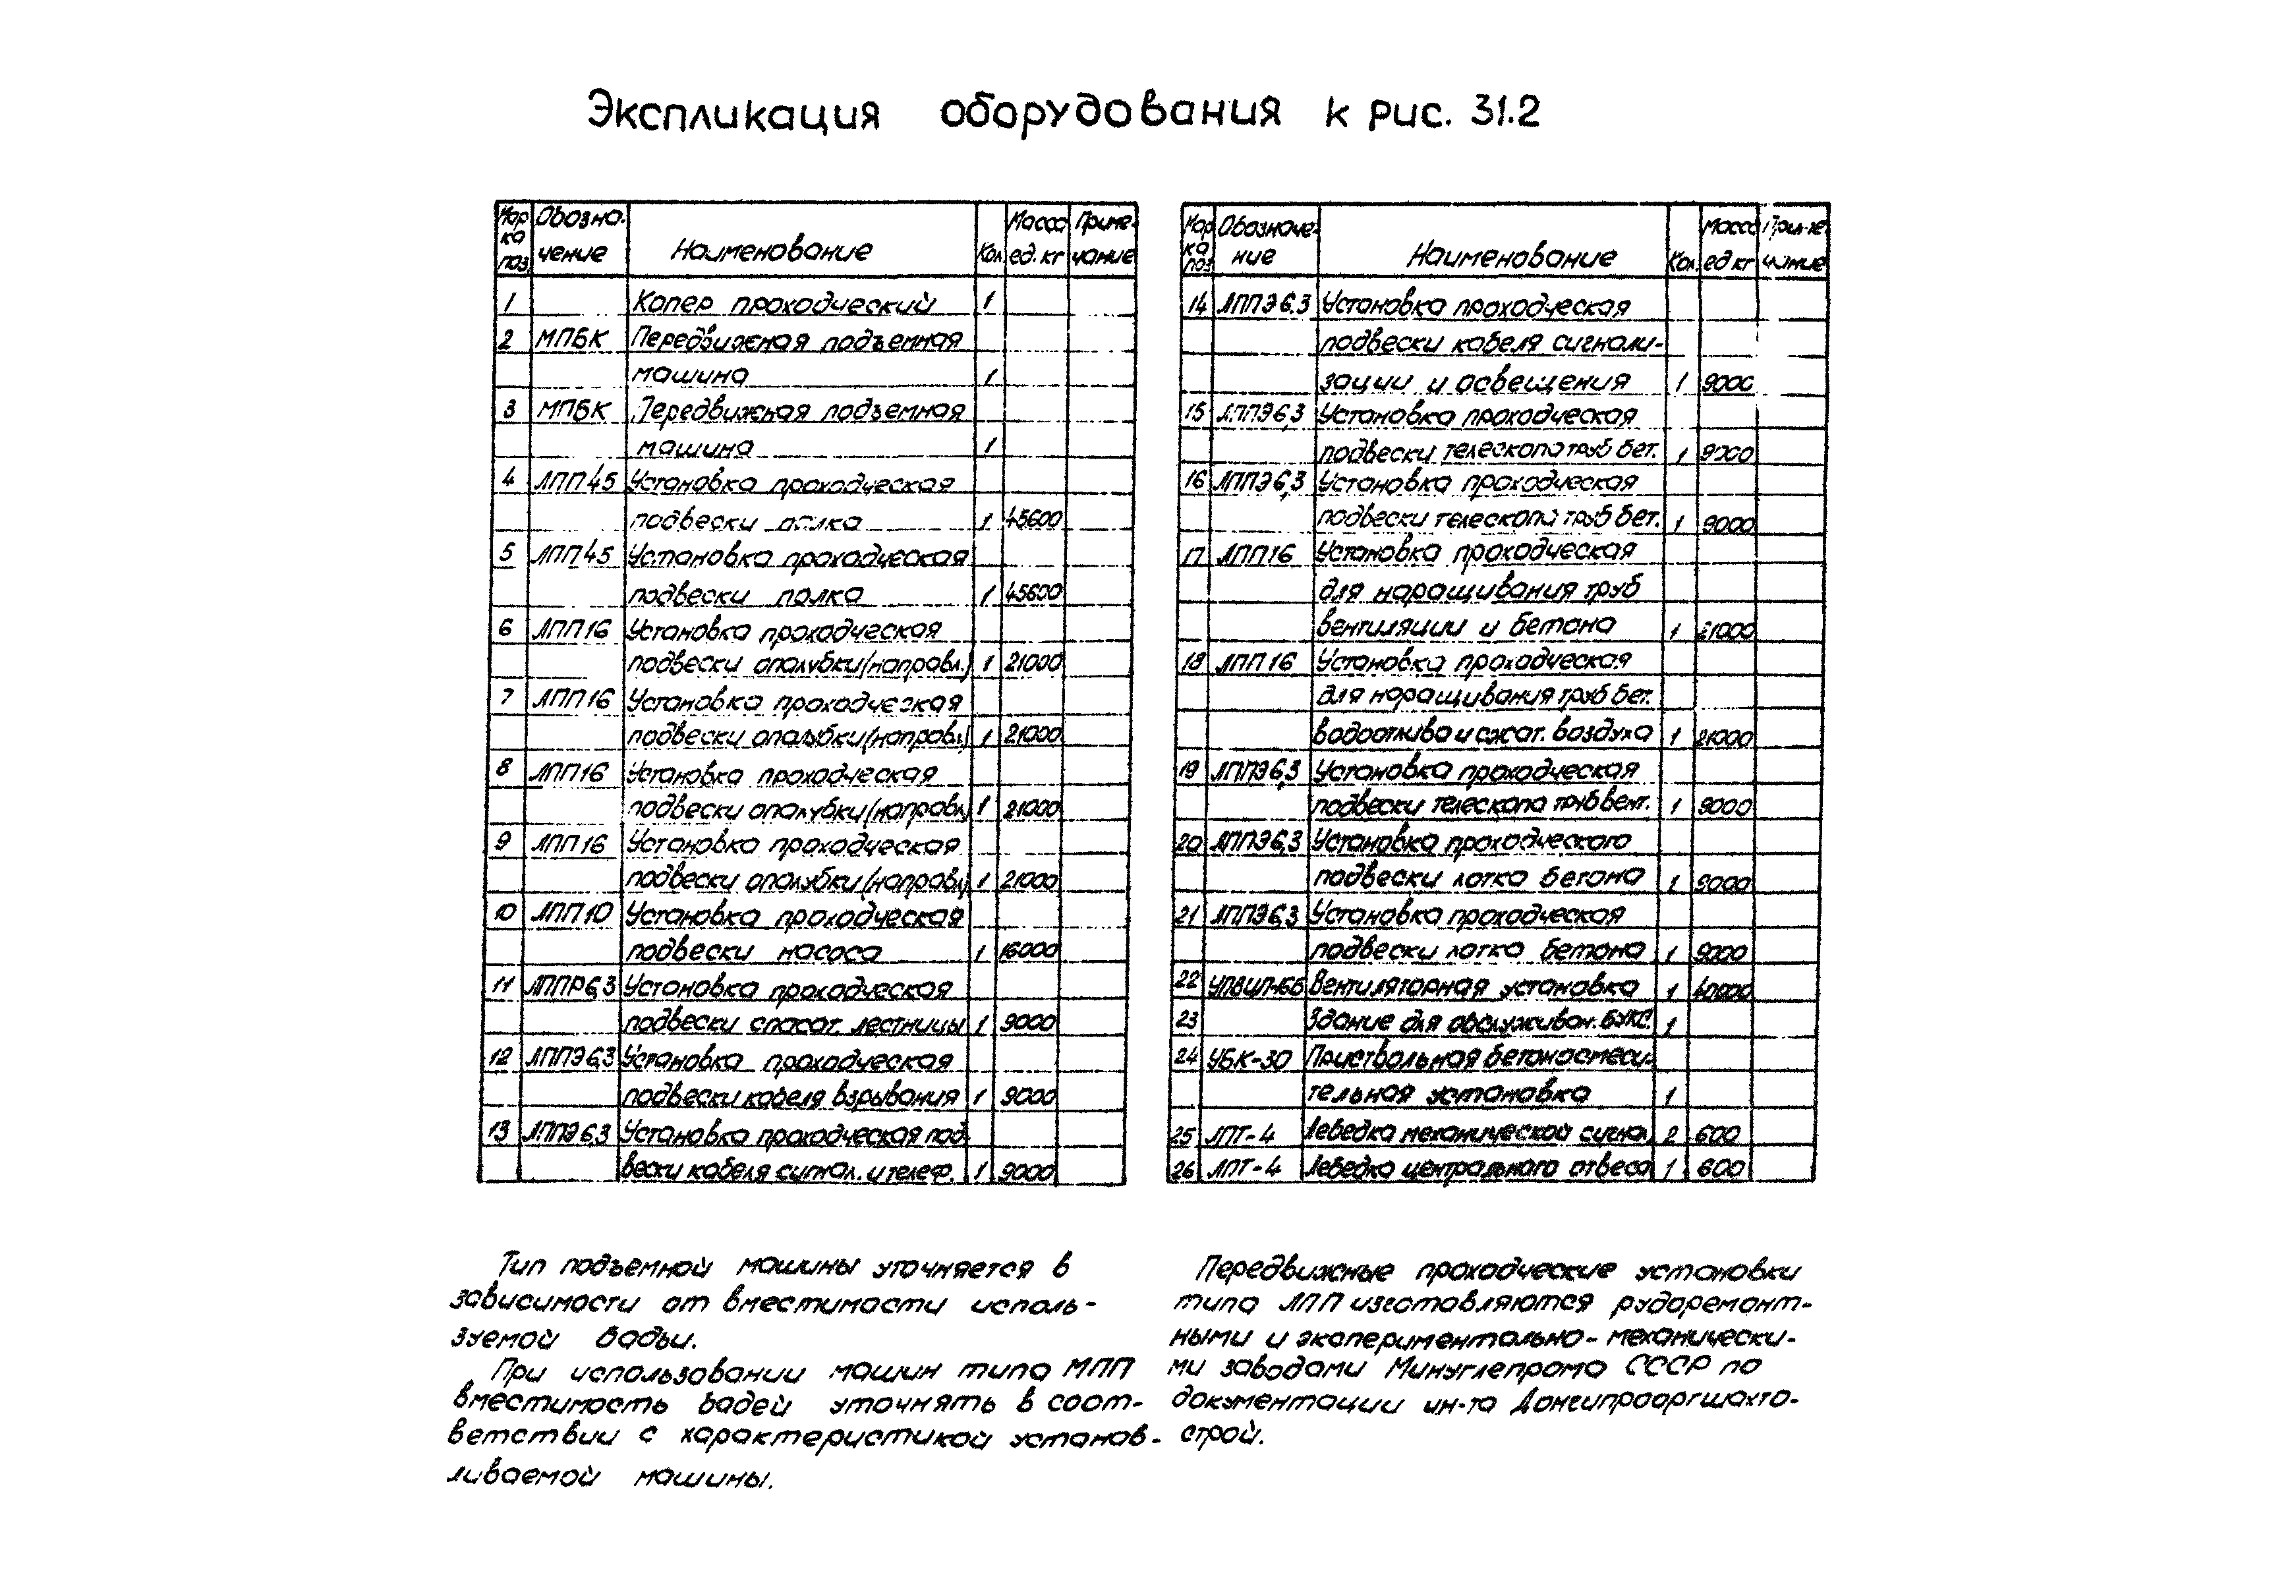 Экспликация оборудования к рис. 31.2
Марка поз. Обозначение Наименование Кол. Масса ед. кг Примечание
1 Копер проходческий 1
2 МПБК Передвижная подъемная
машина 1
3 МПБК Передвижная подъемная
машина 1
4 ЛПП 45 Установка проходческая
подвески полка 1 45600
5 ЛПП 45 Установка проходческая
подвески полка 1 45600
6 ЛПП 16 Установка проходческая
подвески опалубки (направл.) 1 21000
7 ЛПП 16 Установка проходческая
подвески опалубки (направл.) 1 21000
8 ЛПП 16 Установка проходческая
подвески опалубки (направл) 1 21000
9 ЛПП 16 Установка проходческая
подвески опалубки (направл) 1 21000
10 ЛПП 10 Установка проходческая
подвески насоса 1 16000
11 ЛППР 6,3 Установка проходческая
подвески спасат. лестницы 1 9000
12 ЛППЭ 6,3 Установка проходческая
подвески кабеля взрывания 1 9000
13 ЛППЭ 6,3 Установка проходческая под
вески кабеля сигнал. и телеф. 1 9000
Марка поз Обозначение Наименование Кол. Масса ед кг Примечание
14 ЛППЭ 6.3 Установка проходческая
подвески кабеля сигнали-
зации и освещения 1 9000
15 ЛППЭ 6,3 Установка проходческая
подвески телескопа труб бет. 1 9000
16 ЛППЭ 6,3 Установка проходческая
подвески телескопа труб бет. 1 9000
17 ЛПП 16 Установка проходческая
для наращивания труб
вентиляции и бетона 1 21000
18 ЛПП 16 Установка проходческая
для наращивания труб бет.
водоотлива и сжат. воздуха 1 21000
19 ЛППЭ 6,3 Установка проходческая
подвески телескопа труб вент. 1 9000
20 ЛППЭ 6,3 Установка проходческого
подвески лотка бетона 1 9000
21 ЛППЭ 6,3 Установка проходческая
подвески лотка бетона 1 9000
22 Вентиляторная установка 1 40000
23 Здание для обслуживан. букс. 1
24 УБК-30 Приствольная бетоносмеси-
тельная установка 1
25 ЛПТ-4 Лебедка механической сигнал. 2 600
26 ЛПТ-4 Лебедка центрального отвеса 1 600
Тип подъемной машины уточняется в
зависимости от вместимости исполь-
зуемой бадьи.
При использовании машин типа МПП
вместимость бадей уточнять в соот-
ветствии с характеристикой устанав-
ливаемой машины.
Передвижные проходческие установки
типа ЛПП изготовляются рударемонт-
ными и экпериментально-механически-
ми заводами Минуглепрома СССР по
документации ин-та Донгипрооргшахто-
строй.